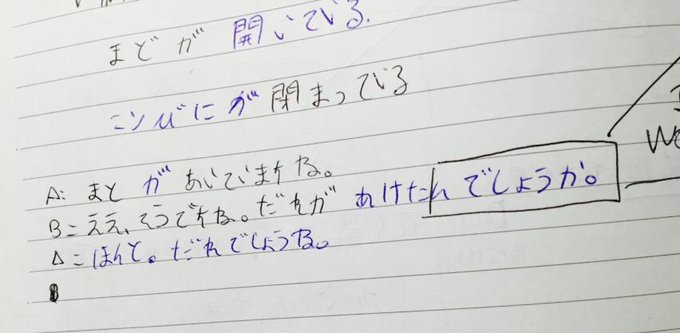 まどが 開いている.
コンビにが 閉まっている
A: まとが あいていますね。
B: ええ、そうですね。だれが あけたんでしょうか。
A: ほんと。だれでしょうね。